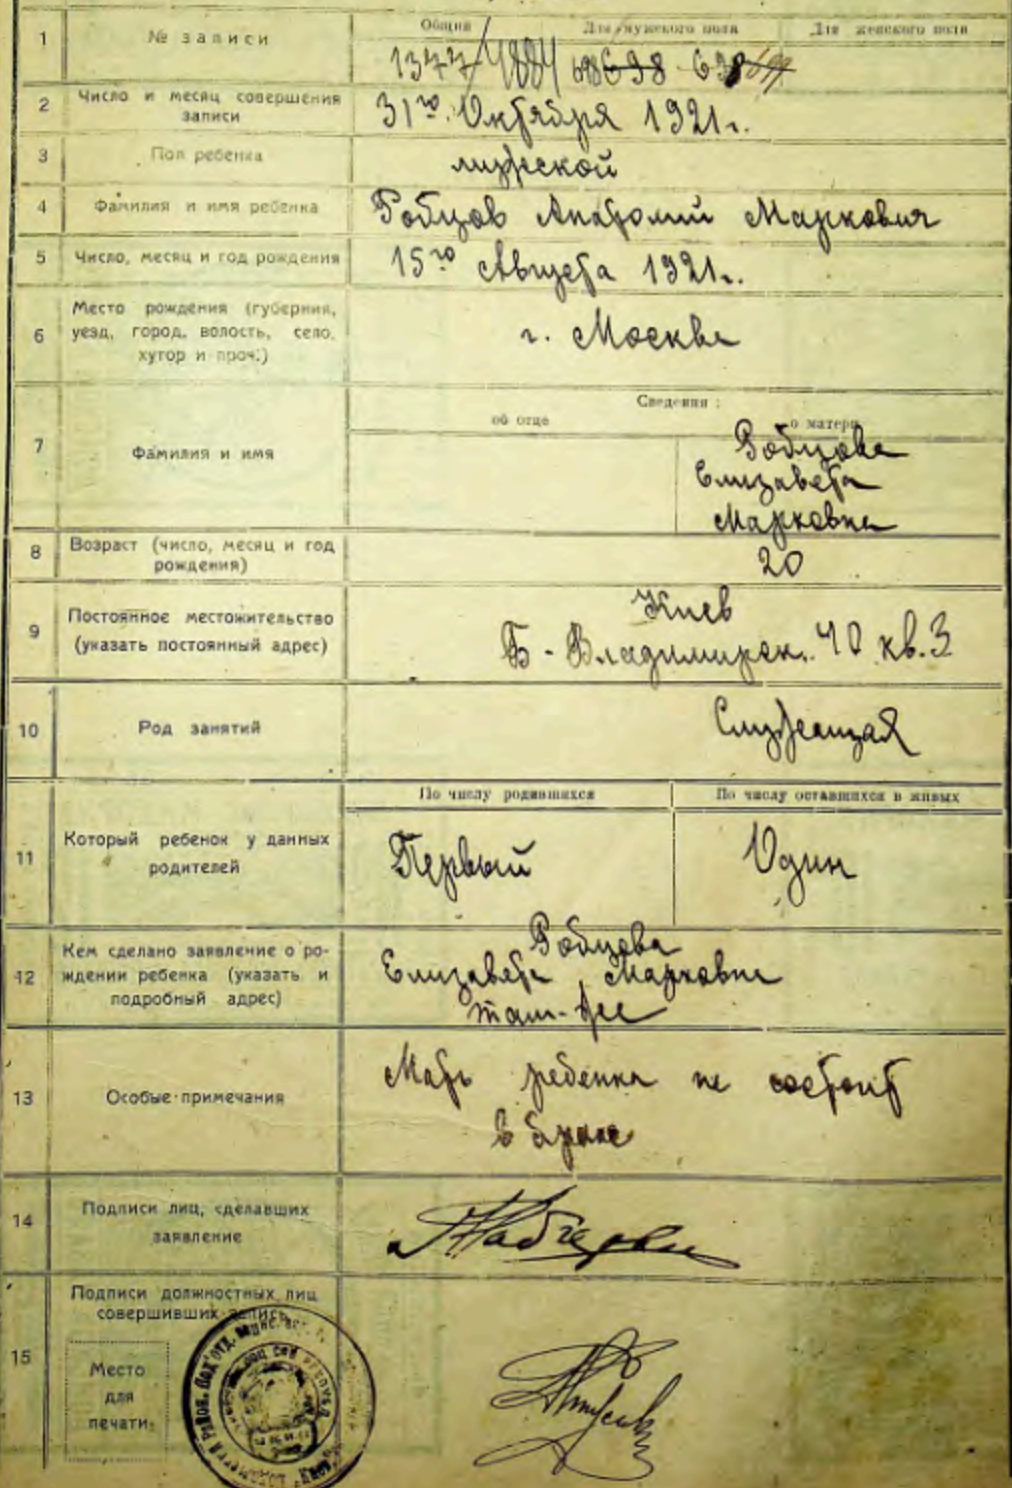 1 № записи Общий Для мужского пола Для женского пола
1377/1884 698 638 638
2 Число и месяц совершения записи 31го Октября 1921г.
3 Пол ребенка мужеской
4 Фамилия и имя ребенка Робцов Анатолий Маркович
5 Число, месяц и год рождения 15го Августа 1921г.
6 Место рождения (губерния,
уезд, город, волость, село,
хутор и проч.)
г. Москва
Сведения:
об отце о матери
7 Фамилия и имя
Робцова
Елизавета
Марковна
8 Возраст (число, месяц и год
рождения)
20
9 Постоянное местожительство
(указать постоянный адрес)
Киев
Б-Владимирск. 40 кв. 3
10 Род занятий Служащая
По числу родившихся По числу оставшихся в живых
11 Который ребенок у данных
родителей
Первый Один
12 Кем сделано заявление о ро-
ждении ребенка (указать и
подробный адрес)
Робцова
Елизавета Марковна
там-же
13 Особые примечания
Мать ребенка не состоит
в браке
14 Подписи лиц, сделавших
заявление
15 Подписи должностных лиц
совершивших запись
Место
для
печати